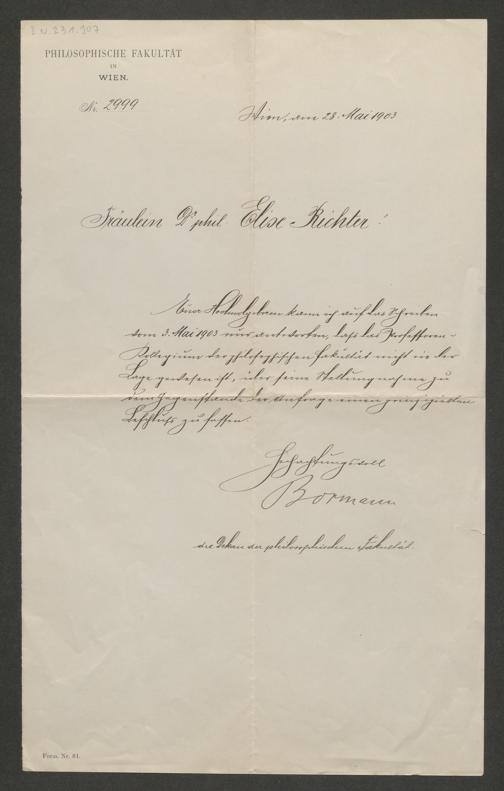 I.N. 231.907
PHILOSOPHISCHE FAKULTÄT
IN
WIEN.
No. 2999
Wien, am 28. Mai 1903
Fräulein Dr phil Elise Richter!
Euer Hochwolgeboren kann ich auf das Schreiben
vom 3. Mai 1903 nur antworten, daſs das Professoren-
Kollegium der philosophischen Fakultät nicht in der
Lage gewesen ist, über seine Stellungnahme zu
dem Gegenstande der Anfrage einen prinzipiellen
Beschluſs zu fassen.
Hochachtungsvoll
Bormann
d. z. Dekan der philosophischen Fakultät.
Form. Nr. 81.